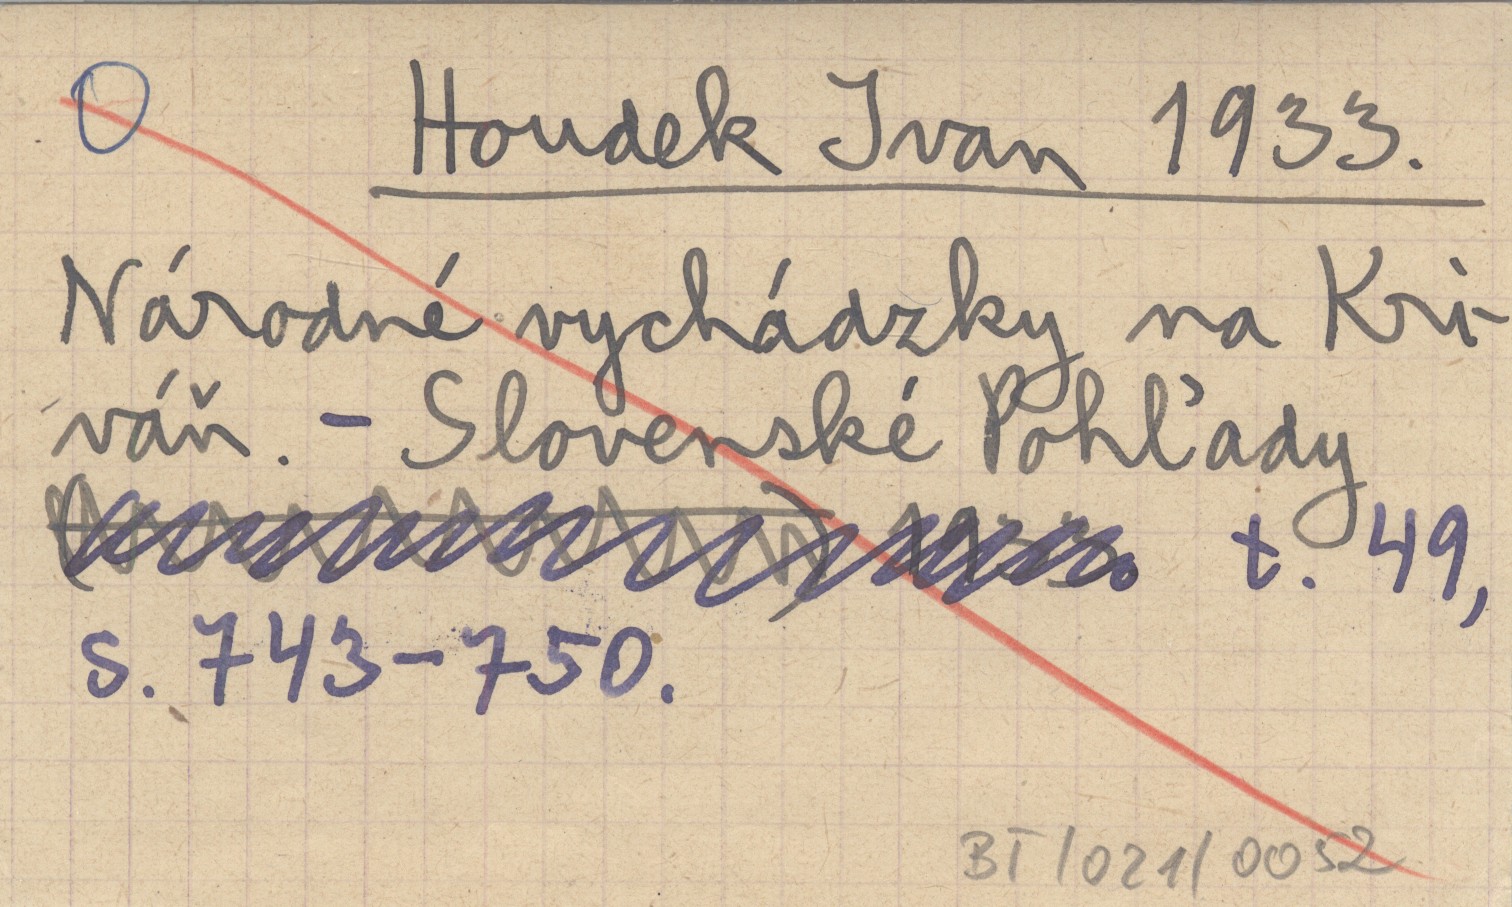 O
Houdek Ivan 1933.
Národné vychádzky na Kri-
váň. - Slovenské Pohľady
t. 49,
s. 743-750.
BT/021/0052